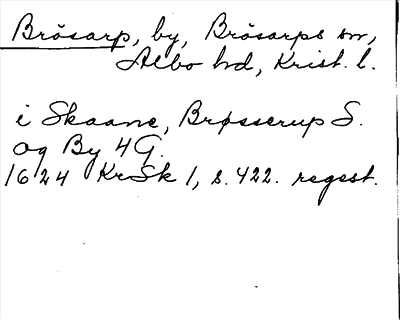 Brösarp, by, Brösarps sn,
Albo hd, Krist. l.
i Skaane, Brøsserup S.
og By 4 G.
1624 KrSk 1, s. 422. regest.